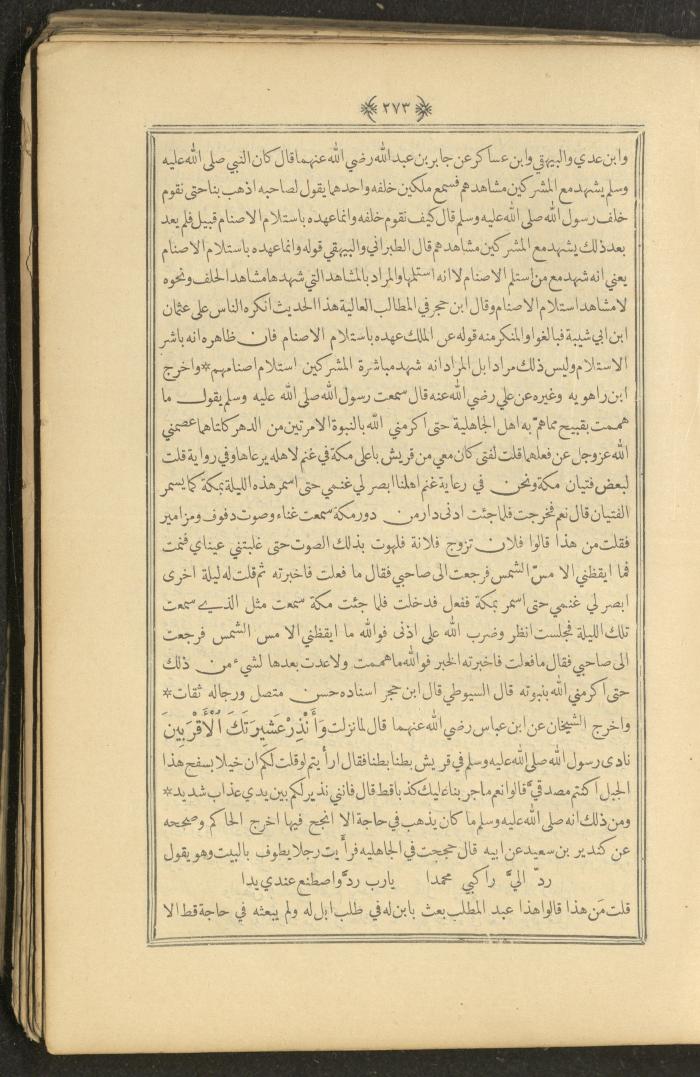 ٢٧٣
وابن عدي والبيهقي وابن عساكر عن جابر بن عبد الله رضي الله عنهما قال كان النبي صلى الله عليه
وسلم يشهد مع المشركين مشاهدهم فسمع ملكين خلفه واحدهما يقول لصاحبه اذهب بنا حتى نقوم
خلف رسول الله صلى الله عليه وسلم قال كيف نقوم خلفه وانما عهده باستلام الاصنام قبيل فلم يعد
بعد ذلك يشهد مع المشركين مشاهدهم قال الطبراني والبيهقي قوله وانما عهده باستلام الاصنام
يعني انه شهد مع من استلم الاصنام لا انه استلمها والمراد بالمشاهد التي شهدها مشاهد الحلف ونحوه
لا مشاهد استلام الاصنام وقال ابن حجر في المطالب العالية هذا الحديث انكره الناس على عثمان
ابن ابي شيبة فبالغوا والمنكر منه قوله عن الملك عهده باستلام الاصنام فان ظاهره انه باشر
الاستلام وليس ذلك مرادا بل المراد انه شهد مباشرة المشركين استلام اصنامهم * واخرج
ابن راهويه وغيره عن علي رضي الله عنه قال سمعت رسول الله صلى الله عليه وسلم يقول ما
هممت بقبيح مما همّ به اهل الجاهلية حتى اكرمني الله بالنبوة الا مرتين من الدهر كلتاهما عصمني
الله عز وجل عن فعلهما قلت لفتى كان معي من قريش باعلى مكة في غنم لاهله يرعاها وفي رواية قلت
لبعض فتيان مكة ونحن في رعاية غنم اهلنا ابصر لي غنمي حتى اسمر هذه الليلة بمكة كما يسمر
الفتيان قال نعم فخرجت فلما جئت ادنى دار من دور مكة سمعت غناء وصوت دفوف ومزامير
فقلت من هذا قالوا فلان تزوج فلانة فلهوت بذلك الصوت حتى غلبتني عيناي فنمت
فما ايقظني الا مسّ الشمس فرجعت الى صاحبي فقال ما فعلت فاخبرته ثم قلت له ليلة اخرى
ابصر لي غنمي حتى اسمر بمكة ففعل فدخلت فلما جئت مكة سمعت مثل الذي سمعت
تلك الليلة فجلست انظر وضرب الله على اذنى فوالله ما ايقظني الا مس الشمس فرجعت
الى صاحبي فقال ما فعلت فاخبرته الخبر فوالله ما هممت ولا عدت بعدها لشيء من ذلك
حتى اكرمني الله بنبوته قال السيوطي قال ابن حجر اسناده حسن متصل ورجاله ثقات *
واخرج الشيخان عن ابن عباس رضي الله عنهما قال لما نزلت وَأَنْذِرْ عَشِيرَتَكَ الْأَقْرَبِينَ
نادى رسول الله صلى الله عليه وسلم في قريش بطنا بطنا فقال ارأيتم لو قلت لكم ان خيلا بسفح هذا
الجبل اكنتم مصدقيَّ قالوا نعم ما جربنا عليك كذبا قط قال فانني نذير لكم بين يدي عذاب شديد *
ومن ذلك انه صلى الله عليه وسلم ما كان يذهب في حاجة الا انجح فيها اخرج الحاكم وصححه
عن كندير بن سعيد عن ابيه قال حججت في الجاهلية فرأيت رجلا يطوف بالبيت وهو يقول
ردّ اليَّ راكبي محمدا يا رب ردَّ واصطنع عندي يدا
قلت مَن هذا قالوا هذا عبد المطلب بعث بابن له في طلب ابل له ولم يبعثه في حاجة قط الا